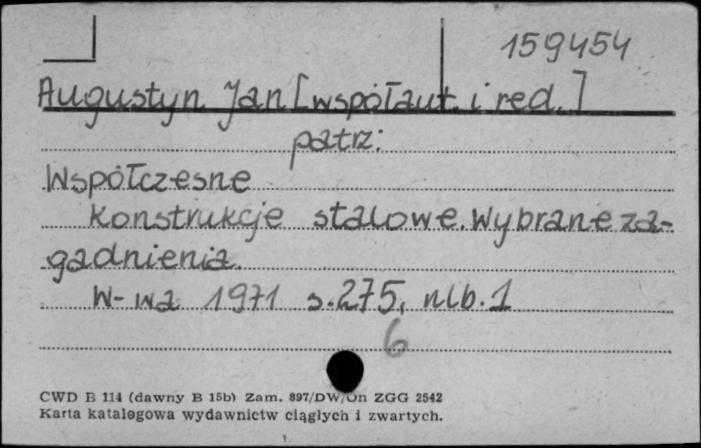 159454
Augustyn Jan [współaut. i red.]
patrz:
Współczesne
konstrukcje stalowe. Wybrane za-
gadnienia.
W-wa 1971 s. 275, nlb. 1
6
CWD B 114 (dawny B 15b) Zam. 897/DW/Un ZGG 2542
Karta katalogowa wydawnictw ciągłych i zwartych.